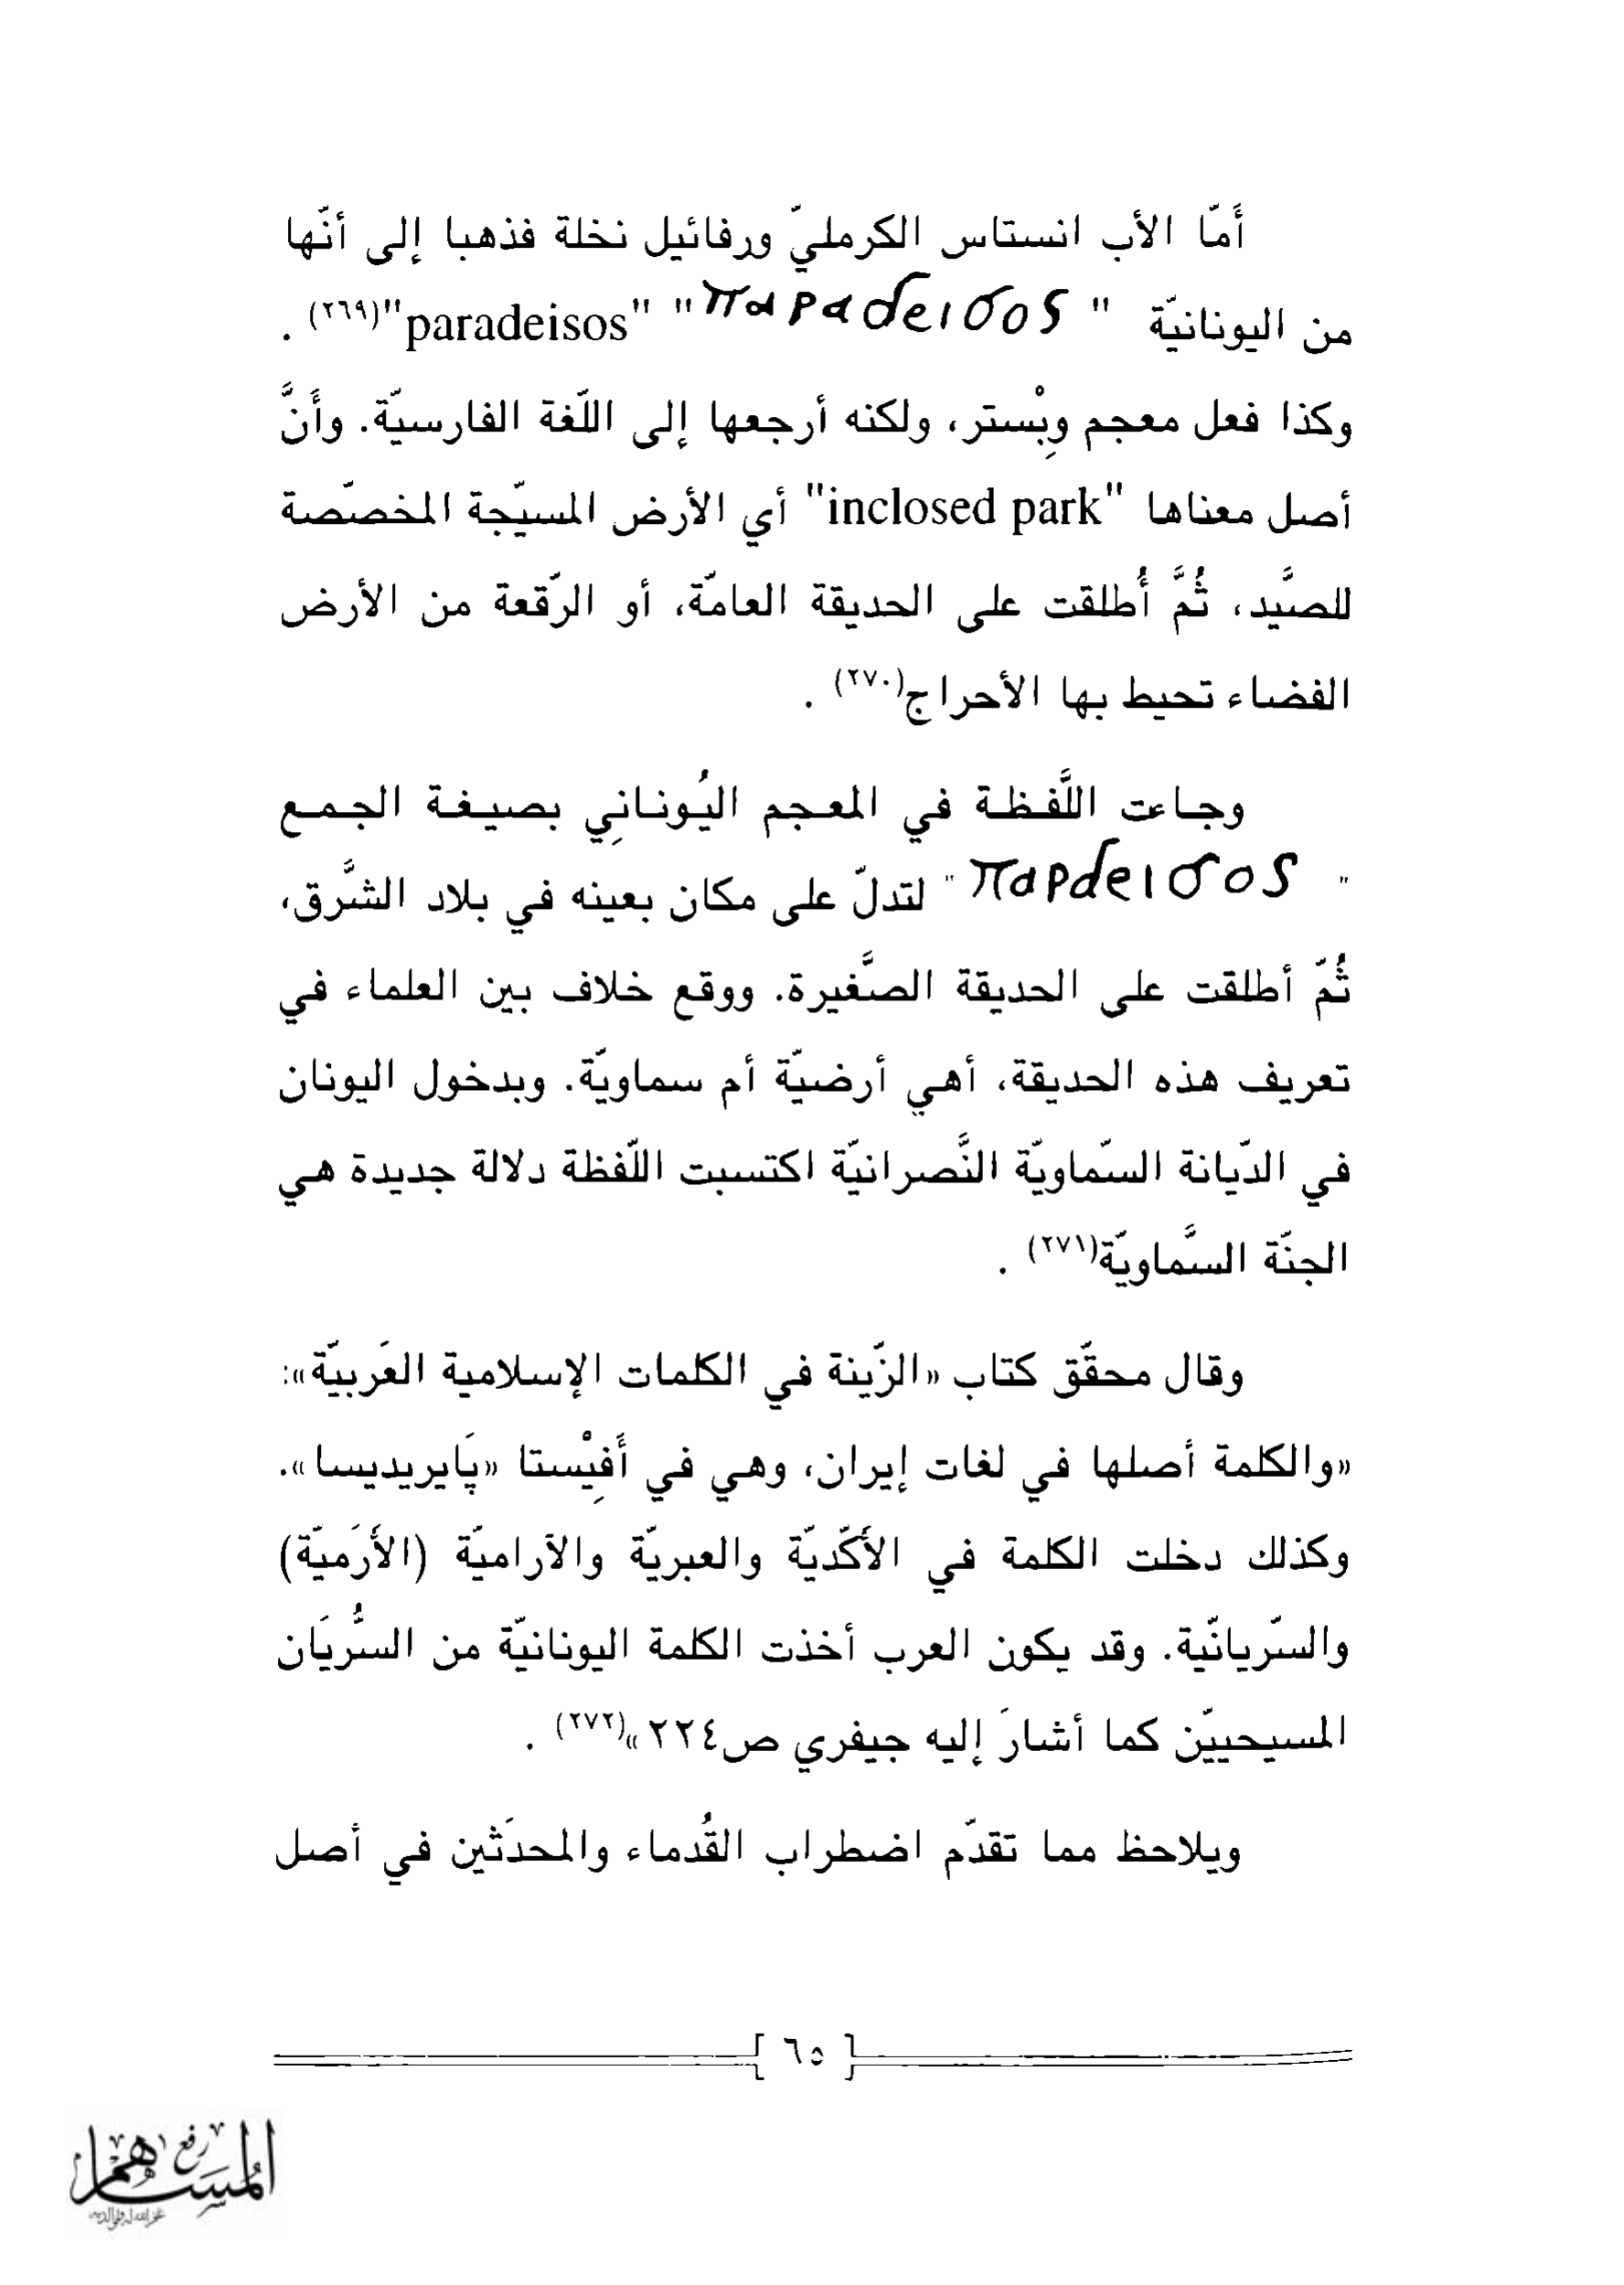 أَمّا الأب انستاس الكرمليّ ورفائيل نخلة فذهبا إلى أنّها
من اليونانيّة " παραdεισος" "paradeisos"(٢٦٩) .
وكذا فعل معجم وبِْستر، ولكنه أرجعها إلى اللّغة الفارسيّة. وأَنَّ
أصل معناها "inclosed park" أي الأرض المسيّجة المخصّصة
للصَّيد، ثُمَّ أُطلقت على الحديقة العامّة، أو الرّقعة من الأرض
الفضاء تحيط بها الأحراج(٢٧٠) .
وجاءت اللَّفظة في المعجم اليُونانِي بصيغة الجمع
" παρdεισος " لتدلّ على مكان بعينه في بلاد الشَّرق،
ثُمّ أطلقت على الحديقة الصَّغيرة. ووقع خلاف بين العلماء في
تعريف هذه الحديقة، أهي أرضيّة أم سماويّة. وبدخول اليونان
في الدّيانة السّماويّة النَّصرانيّة اكتسبت اللّفظة دلالة جديدة هي
الجنّة السَّماويّة(٢٧١) .
وقال محقّق كتاب «الزّينة في الكلمات الإسلامية العَربيّة»:
«والكلمة أصلها في لغات إيران، وهي في أَفِيْستا «پَايريديسا».
وكذلك دخلت الكلمة في الأَكّديّة والعبريّة والآراميّة (الأَرَميّة)
والسّريانّية. وقد يكون العرب أخذت الكلمة اليونانيّة من السُّريَان
المسيحييّن كما أشارَ إليه جيفري ص٢٢٤»(٢٧٢) .
ويلاحظ مما تقدّم اضطراب القُدماء والمحدَثين في أصل
[ ٦٥ ]
رفع المساهم
غفر الله له ولوالديه